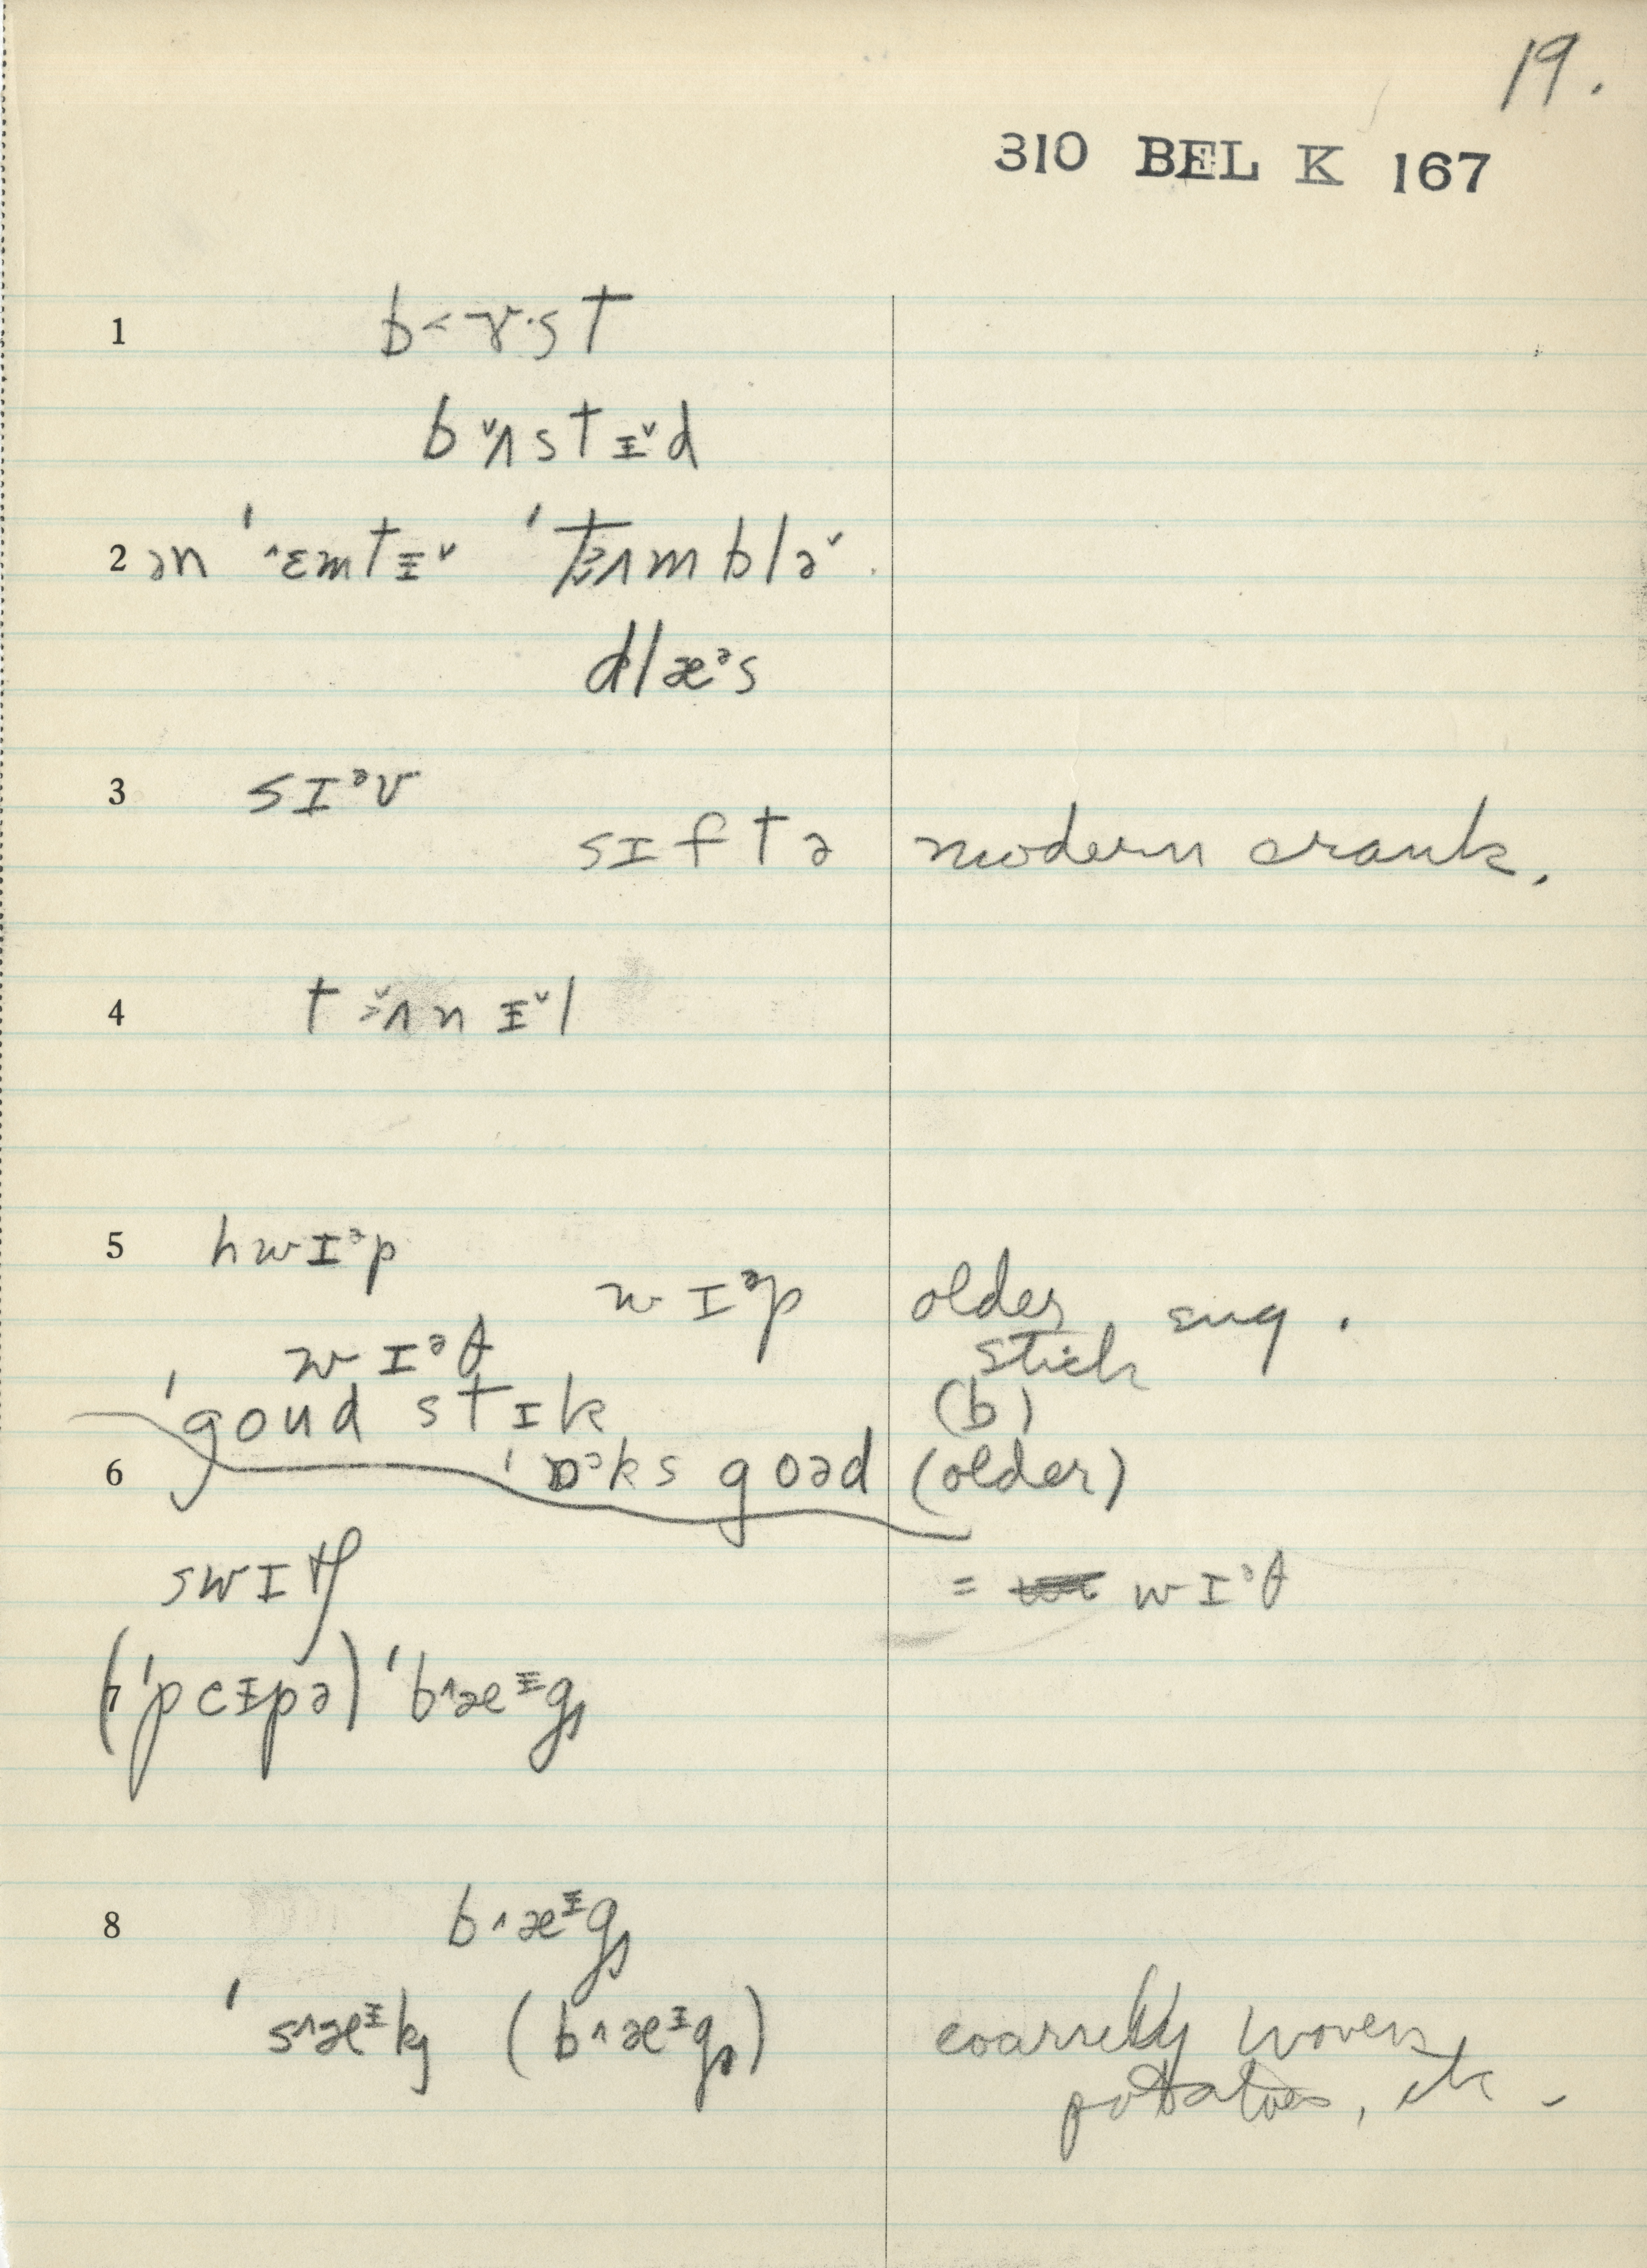 19.
310 BEL K 167
1 b˂ɤ·st
b˅ʌstɪ˅d
2 ən ˈ˄ɛmtɪ˅ ˈt˃ʌmblə˅.
dlæᵊs
3 sɪᵊv
sɪftə modern crank.
4 t˃˅ʌnɪ˅l
5 hwɪᵊp
wɪᵊp older sug.
wɪᵊθ stick
ˈgoud stɪk (b)
6 ˈɒᵊks goəd (older)
swɪtʃ = wɪᵊθ
7 (ˈpeɪpə) ˈb˄æᶦgz
8 b˄æᶦgz
ˈs˄æᶦks (b˄æᶦgz) coarsely woven
potatoes, etc.